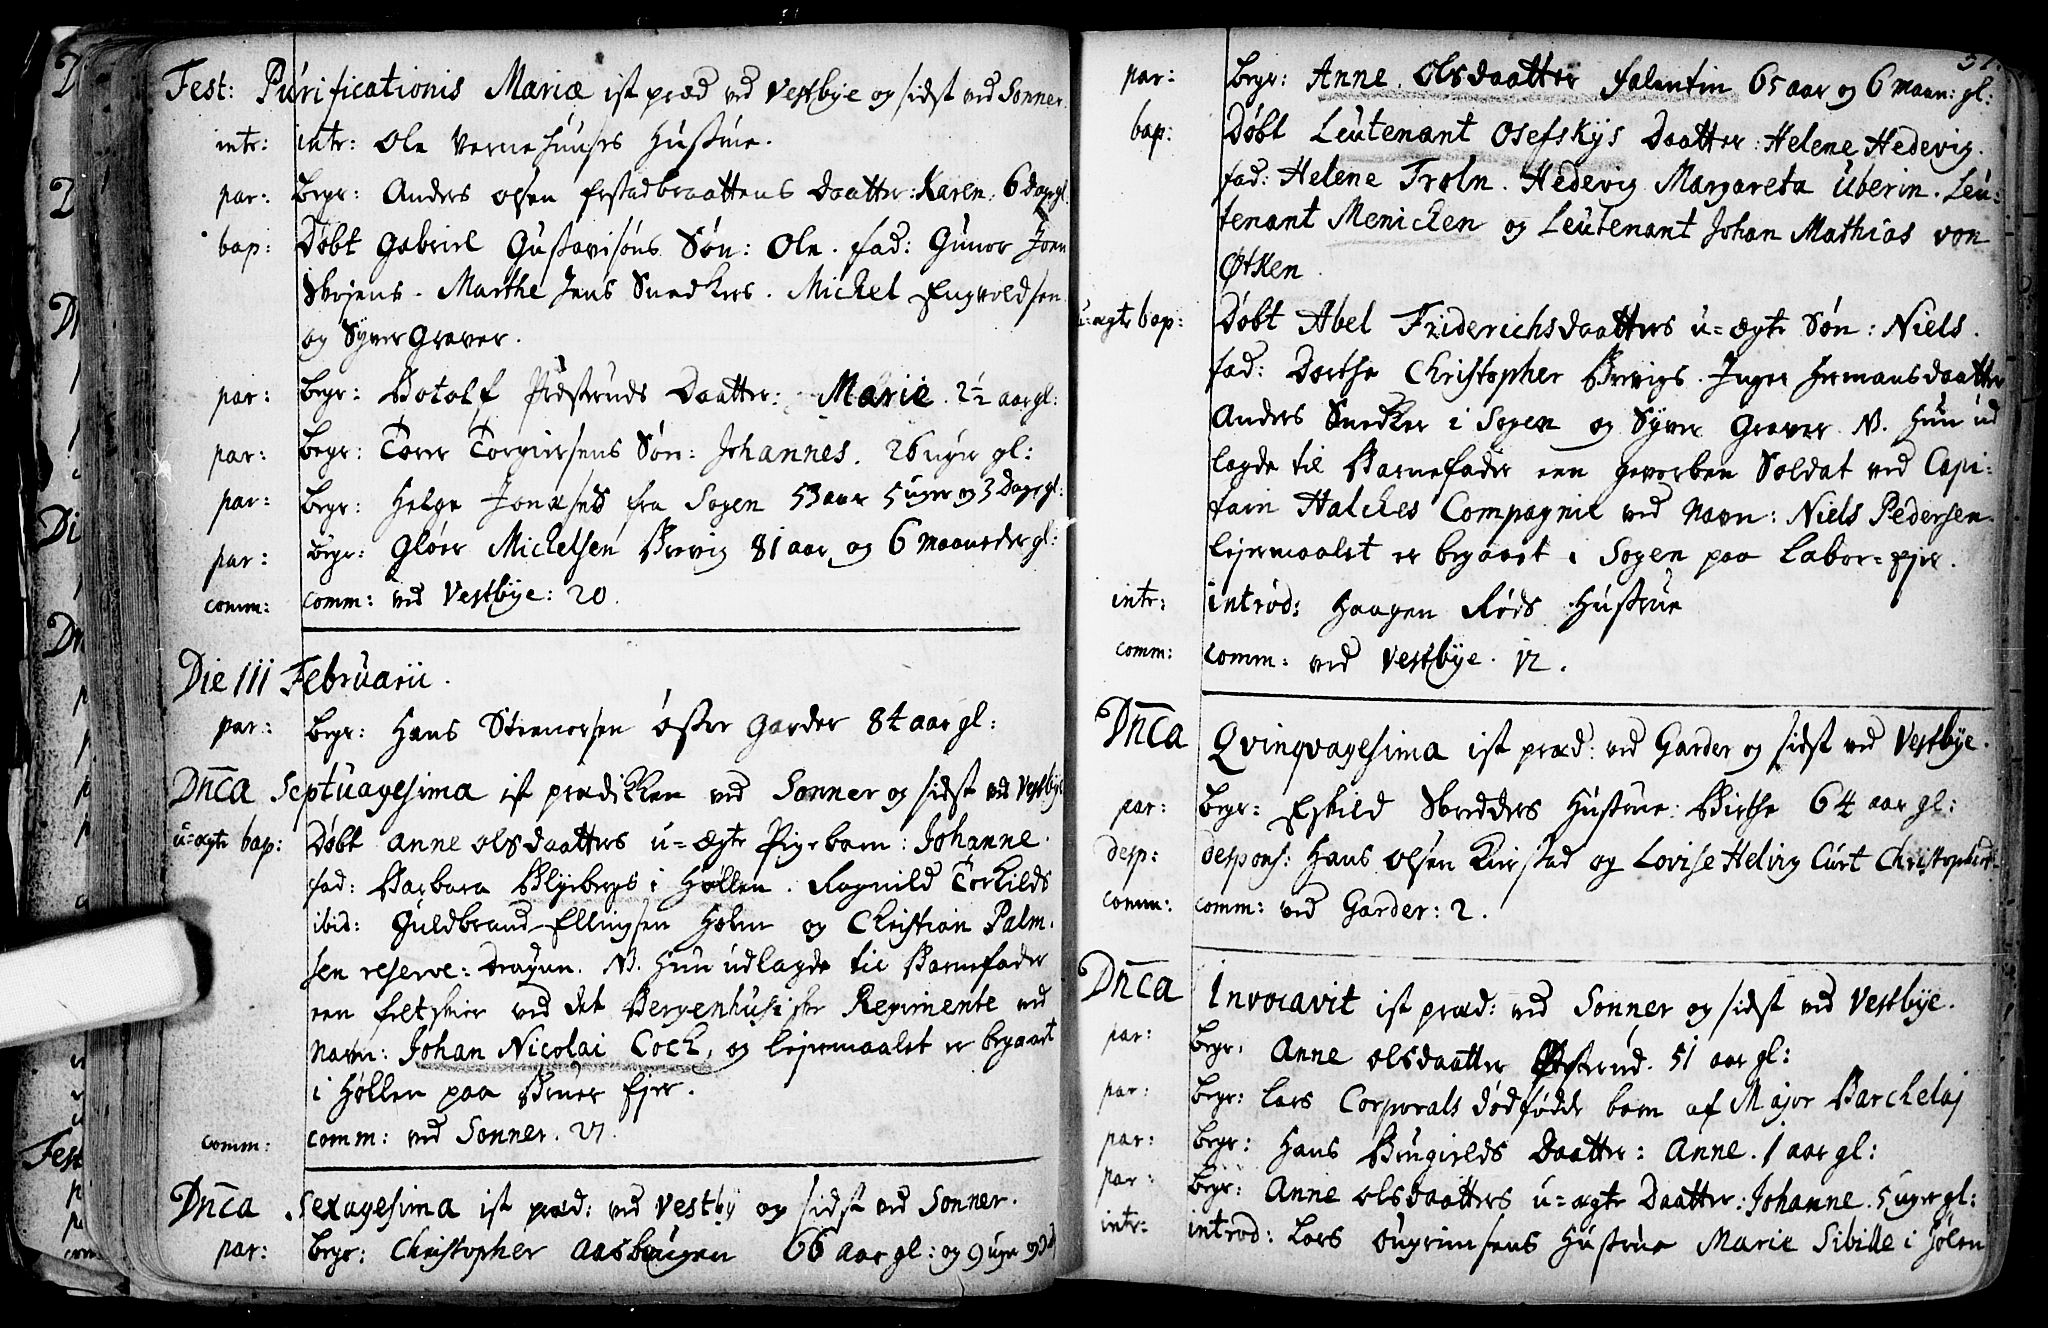 Fest: Purificationis Mariæ ist præd ved Vestbye og sidst ved Sonner.
intr: intr: Ole Vernehuuses Hustrue.
par: Begr: Anders Olsen Erstadbraattens Daatter: Karen. 6 Dage gl.
bap: Døbt Gabriel Gustavisøns Søn: Ole. fad: Gunor Joen
Skojens. Marthe Jens Snedkers. Michel Engvoldsen
og Syver Graver.
par: Begr: Botolf Daatter: Marie. 2½ aar gl:
par: Begr: Torer Torgiersens Søn: Johannes. 26 uger gl:
par: Begr: Helge Jonæsens fra Sogen 53 aar 5 uger og 3 Dage gl:
par: Begr: Gloer Michelsen Brevig 81 aar og 6 maaneder gl:
comm: comm: ved Vestbye: 20.
Die III Februarii.
par: Begr: Hans Steenersen Øster Garder 84 aar gl:
Dnca Septuagesima ist prædikken ved Sonner og sidst ved Vestbye
u=ægte bap: Døbt Anne Olsdaatters u=ægte Pigebarn: Johanne.
fad: Barbara Blyebergs i Høllen. Ragnild Torkilds
ibid: Guldbrand Ellingsen Holm og Christian Palm-
sen reserve: Dragun. NB. Hun udlagde til Barnefader
een feltskier ved det Bergenhusiske Regimente ved
Navn: Johan Nicolai Cock, og lejermaalet er begaaet
i Høllen paa Bruer Ejer.
comm: comm: ved Sonner. 27.
Dnca Sexagesima ist præd: ved Vestby og sidst ved Sonner.
par: Begr: Christopher Aashaugen 66 aar gl: og 9 uger og 3 d
par: Begr: Anne Olsdaatter falentin 65 aar og 6 maan: gl:
bap: Døbt Leutenant Osefskys Daatter: Helene Hedevig.
fad: Helene Troln. Hedevig Margareta Uberin. Leu-
tenant Menichen og Leutenant Johan Mathias von
Øtken.
u=ægte bap: Døbt Abel Friderichsdaatters u=ægte Søn: Niels.
fad: Dorthe Christopher Brevigs. Inger Hermansdaatter
Anders Snedker i Sogen og Syver Graver. NB. Hun ud
lagde til Barnefader een gevorben Soldat ved Capi-
tain Halckes Compagnie ved Navn: Niels Pedersen.
Lejermaalet er begaaet i Sogen paa Labor=Ejer.
intr: introd: Haagen Røds Hustrue
comm: comm: ved Vestbye. 12.
Dnca Qvinqvagesima ist præd: ved Garder og sidst ved Vestbye.
par: Begr: Eskild Skredders Hustrue: Birthe 64 aar gl:
desp: despons: Hans Olsen Kirstad og Lovise Helvig Curt Christopherd:
comm: comm: ved Garder: 2.
Dnca Invocavit ist præd: ved Sonner og sidst ved Vestbye.
par: Begr: Anne Olsdaatter Østerud. 51 aar gl:
par: Begr: Lars Corporals dødfødde barn af Major Barchelaj
par: Begr: Hans Brugields Daatter: Anne. 1 aar gl:
par: Begr: Anne Olsdaatters u=ægte Daatter: Johanne. 5 uger gl:
intr: introd: Lars Gugrimsens Hustrue Marie Sibille i Jølen